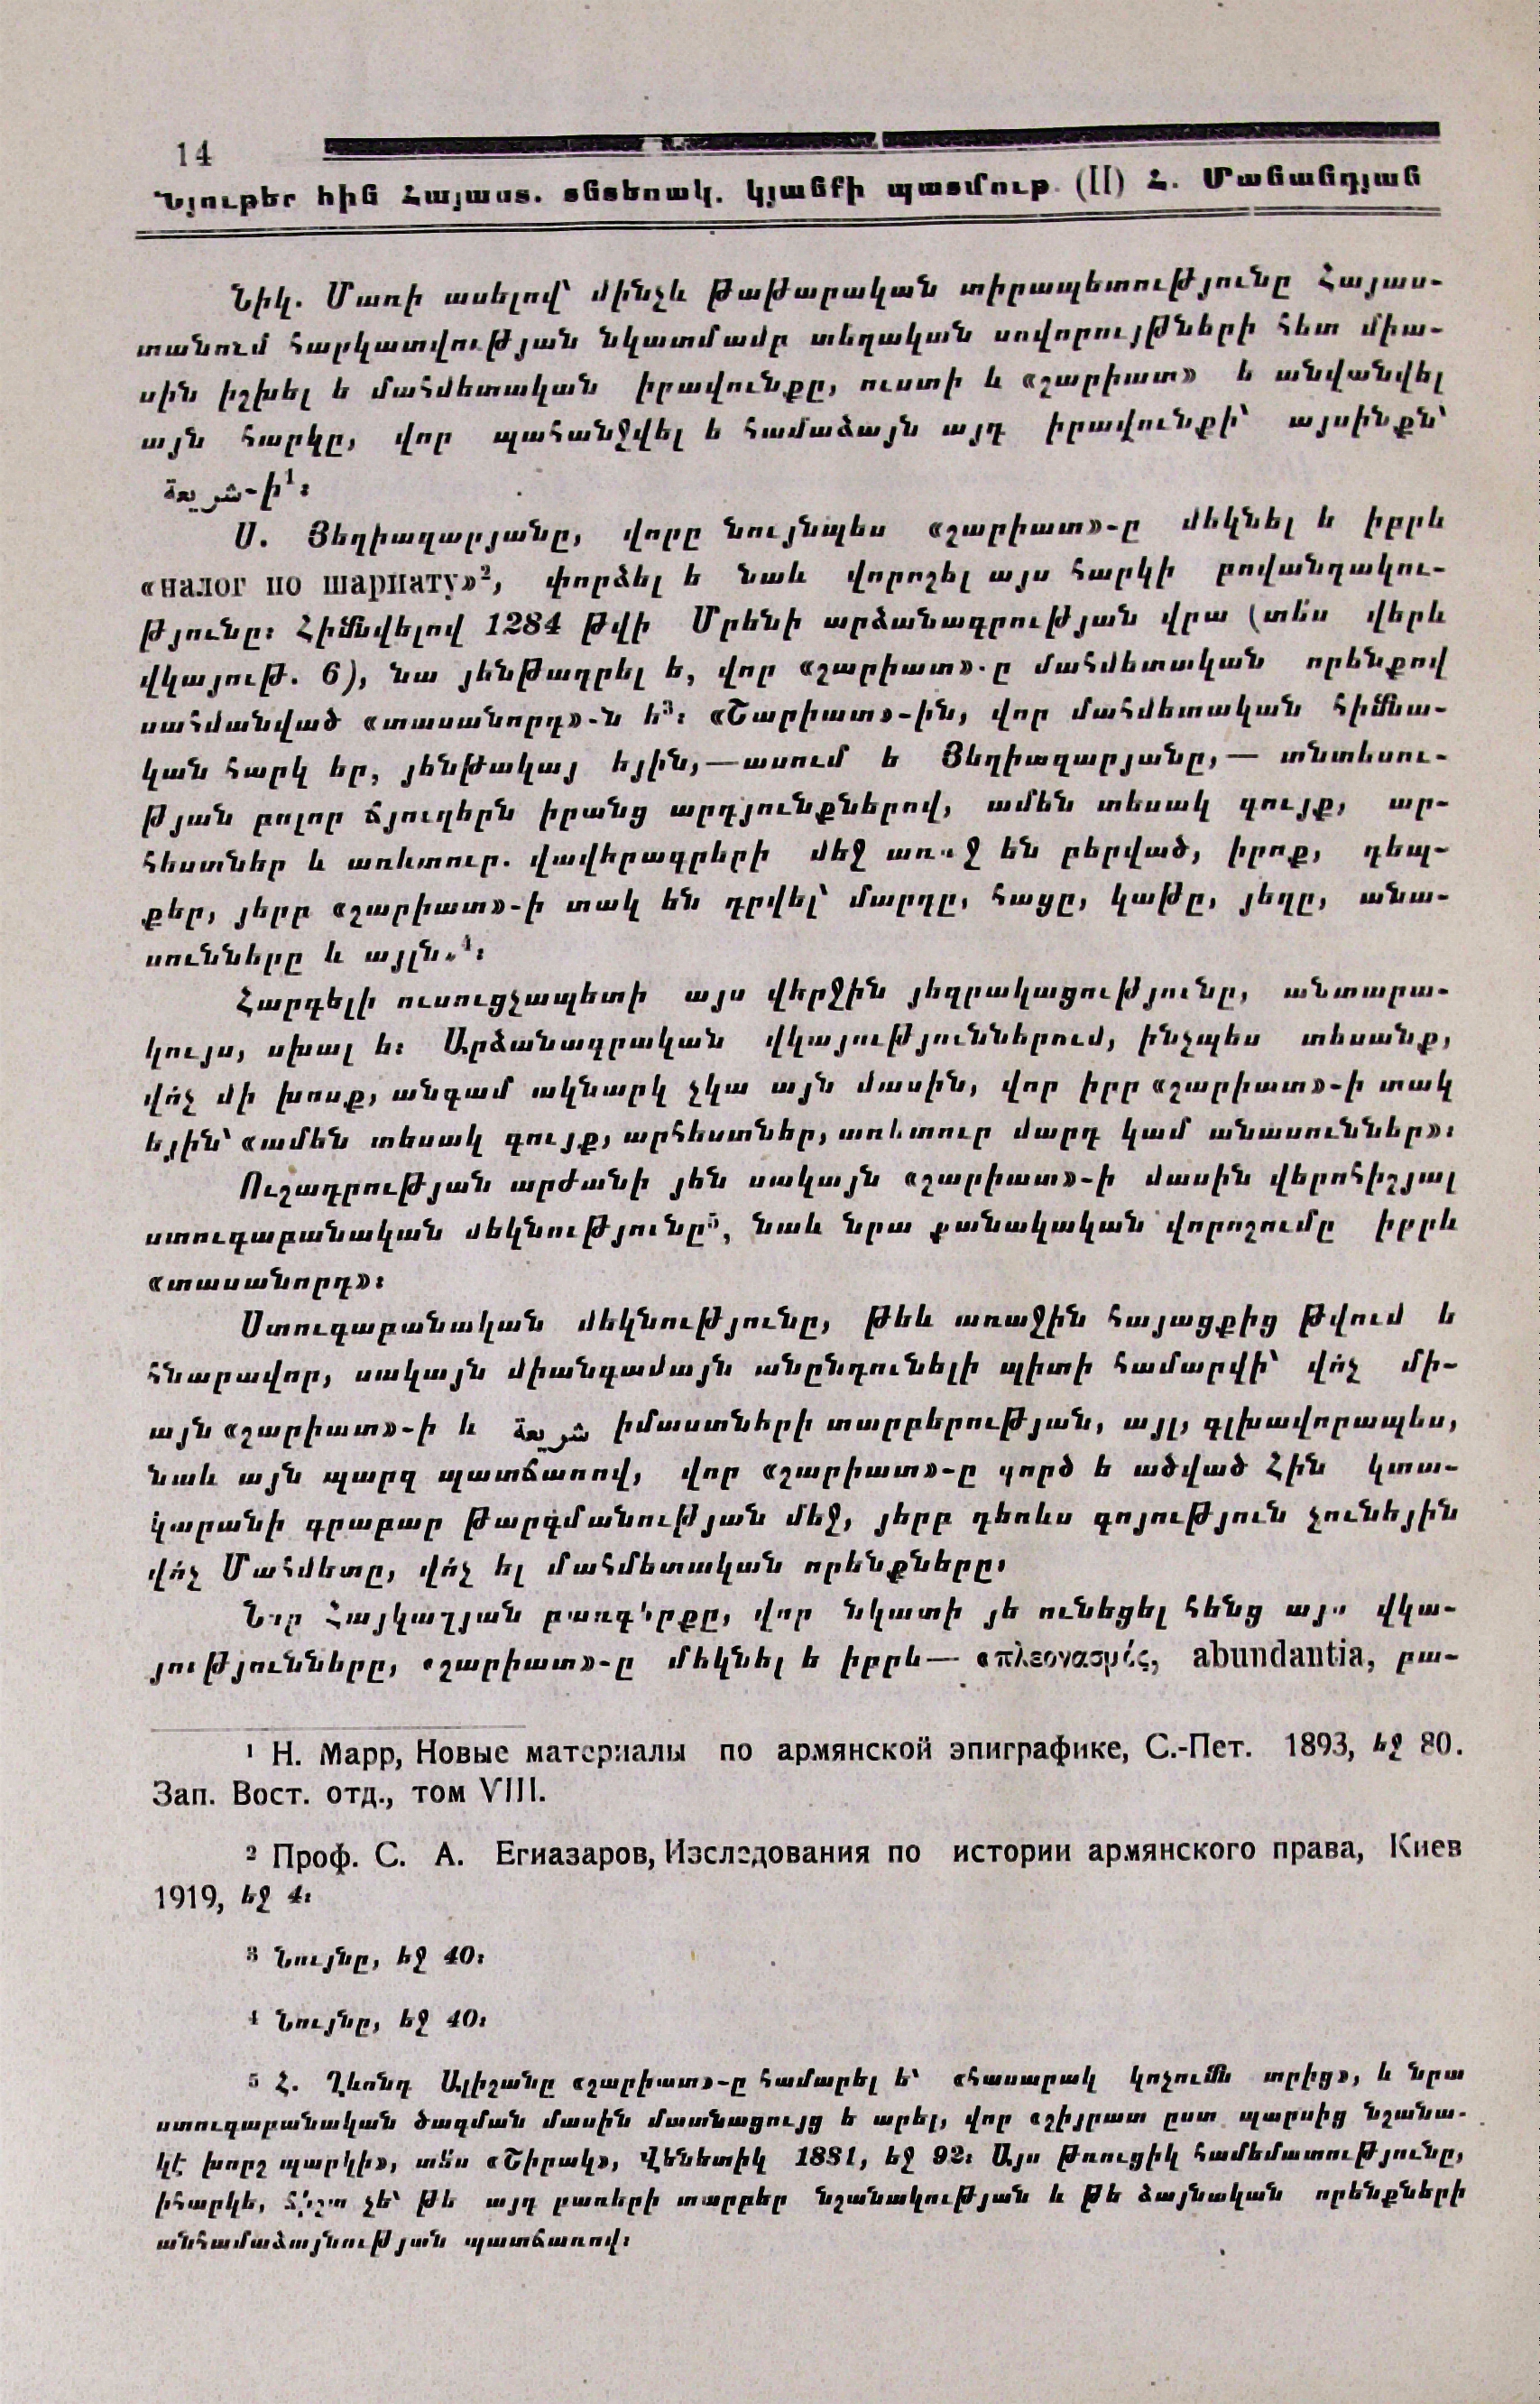 14
Նյութեր հին Հայաստ. տնտեսակ. կյանքի պատմութ. (II) Հ. Մանանդյան
Նիկ. Մառի ասելով՝ մինչև թաթարական տիրապետությունը Հայաս-
տանում հարկատվության նկատմամբ տեղական սովորույթների հետ միա-
սին իշխել ե մահմետական իրավունքը, ուստի և «շարիատ» ե անվանվել
այն հարկը, վոր պահանջվել ե համաձայն այդ իրավունքի՝ այսինքն՝
شريعة-ի¹։
Ս. Յեղիազարյանը, վորը նույնպես «շարիատ»-ը մեկնել ե իբրև
«налог по шариату»², փորձել ե նաև վորոշել այս հարկի բովանդակու-
թյունը։ Հիմնվելով 1284 թվի Մրենի արձանագրության վրա (տե՛ս վերև
վկայութ. 6), նա յենթադրել ե, վոր «շարիատ»-ը մահմետական որենքով
սահմանված «տասանորդ»-ն ե³։ «Շարիատ»-ին, վոր մահմետական հիմնա-
կան հարկ եր, յենթակայ եյին,—ասում ե Յեղիազարյանը,— տնտեսու-
թյան բոլոր ճյուղերն իրանց արդյունքներով, ամեն տեսակ գույք, ար-
հեստներ և առևտուր. վավերագրերի մեջ առաջ են բերված, իրոք, դեպ-
քեր, յերբ «շարիատ»-ի տակ են դրվել՝ մարդը, հացը, կաթը, յեղը, անա-
սունները և այլն»⁴։
Հարգելի ուսուցչապետի այս վերջին յեզրակացությունը, անտարա-
կույս, սխալ ե։ Արձանագրական վկայություններում, ինչպես տեսանք,
վո՛չ մի խոսք, անգամ ակնարկ չկա այն մասին, վոր իբր «շարիատ»-ի տակ
եյին՝ «ամեն տեսակ գույք, արհեստներ, առևտուր մարդ կամ անասուններ»։
Ուշադրության արժանի յեն սակայն «շարիատ»-ի մասին վերոհիշյալ
ստուգաբանական մեկնությունը⁵, նաև նրա քանակական վորոշումը իբրև
«տասանորդ»։
Ստուգաբանական մեկնությունը, թեև առաջին հայացքից թվում ե
հնարավոր, սակայն միանգամայն անընդունելի պիտի համարվի՝ վո՛չ մի-
այն «շարիատ»-ի և شريعة իմաստների տարբերության, այլ, գլխավորապես,
նաև այն պարզ պատճառով, վոր «շարիատ»-ը գործ ե ածված Հին կտա-
կարանի գրաբար թարգմանության մեջ, յերբ դեռևս գոյություն չունեյին
վո՛չ Մահմետը, վո՛չ ել մահմետական որենքները։
Նոր Հայկազյան բառգիրքը, վոր նկատի յե ունեցել հենց այս վկա-
յությունները, «շարիատ»-ը մեկնել ե իբրև— «πλεονασμός, abundantia, բա-
¹ Н. Марр, Новые материалы по армянской эпиграфике, С.-Пет. 1893, եջ 80.
Зап. Вост. отд., том VIII.
² Проф. С. А. Егиазаров, Изследования по истории армянского права, Киев
1919, եջ 4։
³ Նույնը, եջ 40։
⁴ Նույնը, եջ 40։
⁵ Հ. Ղևոնդ Ալիշանը «շարիատ»-ը համարել ե՝ «հասարակ կոչումն տրից», և նրա
ստուգաբանական ծագման մասին մատնացույց ե արել, վոր «շիյրատ ըստ պարսից նշանա-
կէ խորշ պարկի», տե՛ս «Շիրակ», Վենետիկ 1881, եջ 92։ Այս թռուցիկ համեմատությունը,
իհարկե, ճիշտ չե՝ թե այդ բառերի տարբեր նշանակության և թե ձայնական որենքների
անհամաձայնության պատճառով։